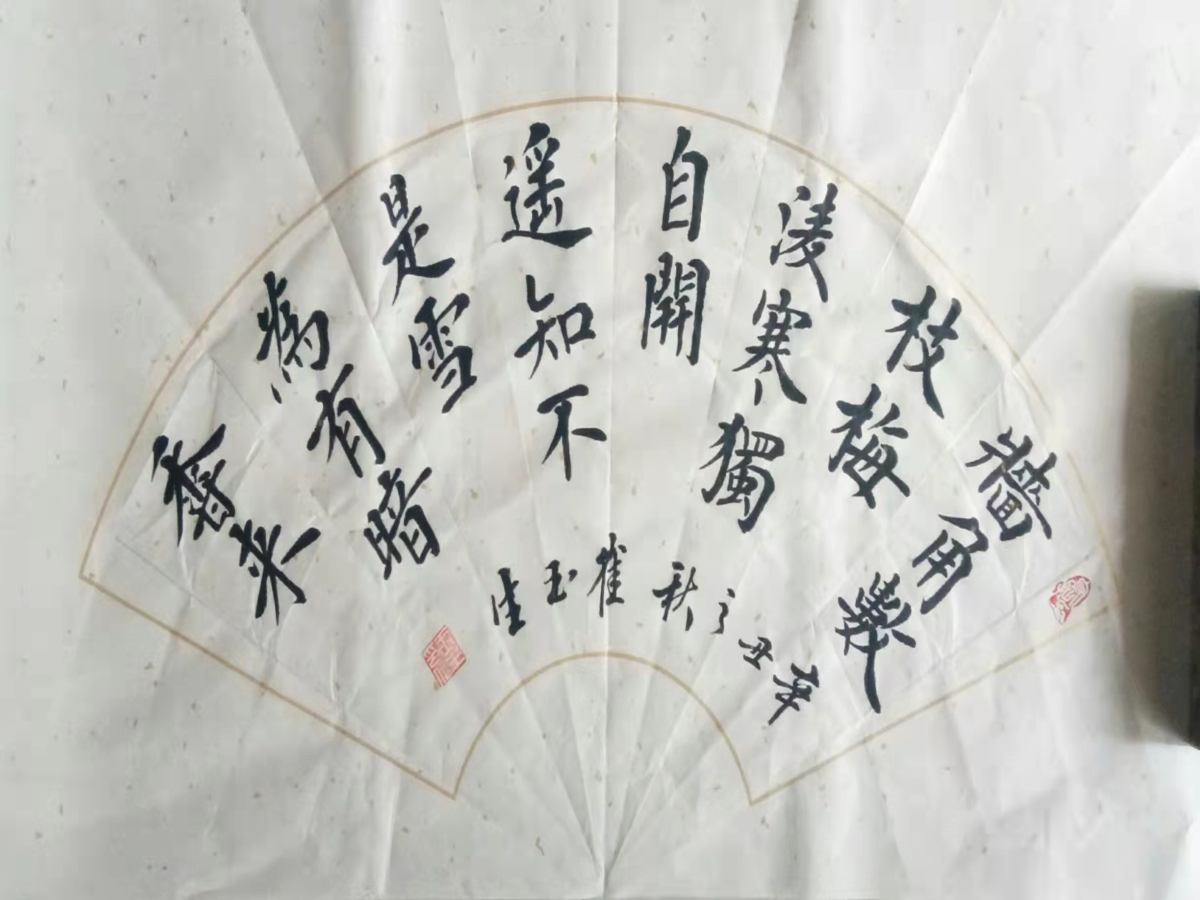 牆角數
枝梅
淩寒獨
自開
遥知不
是雪
為有暗
香来
辛丑之秋
崔玉生